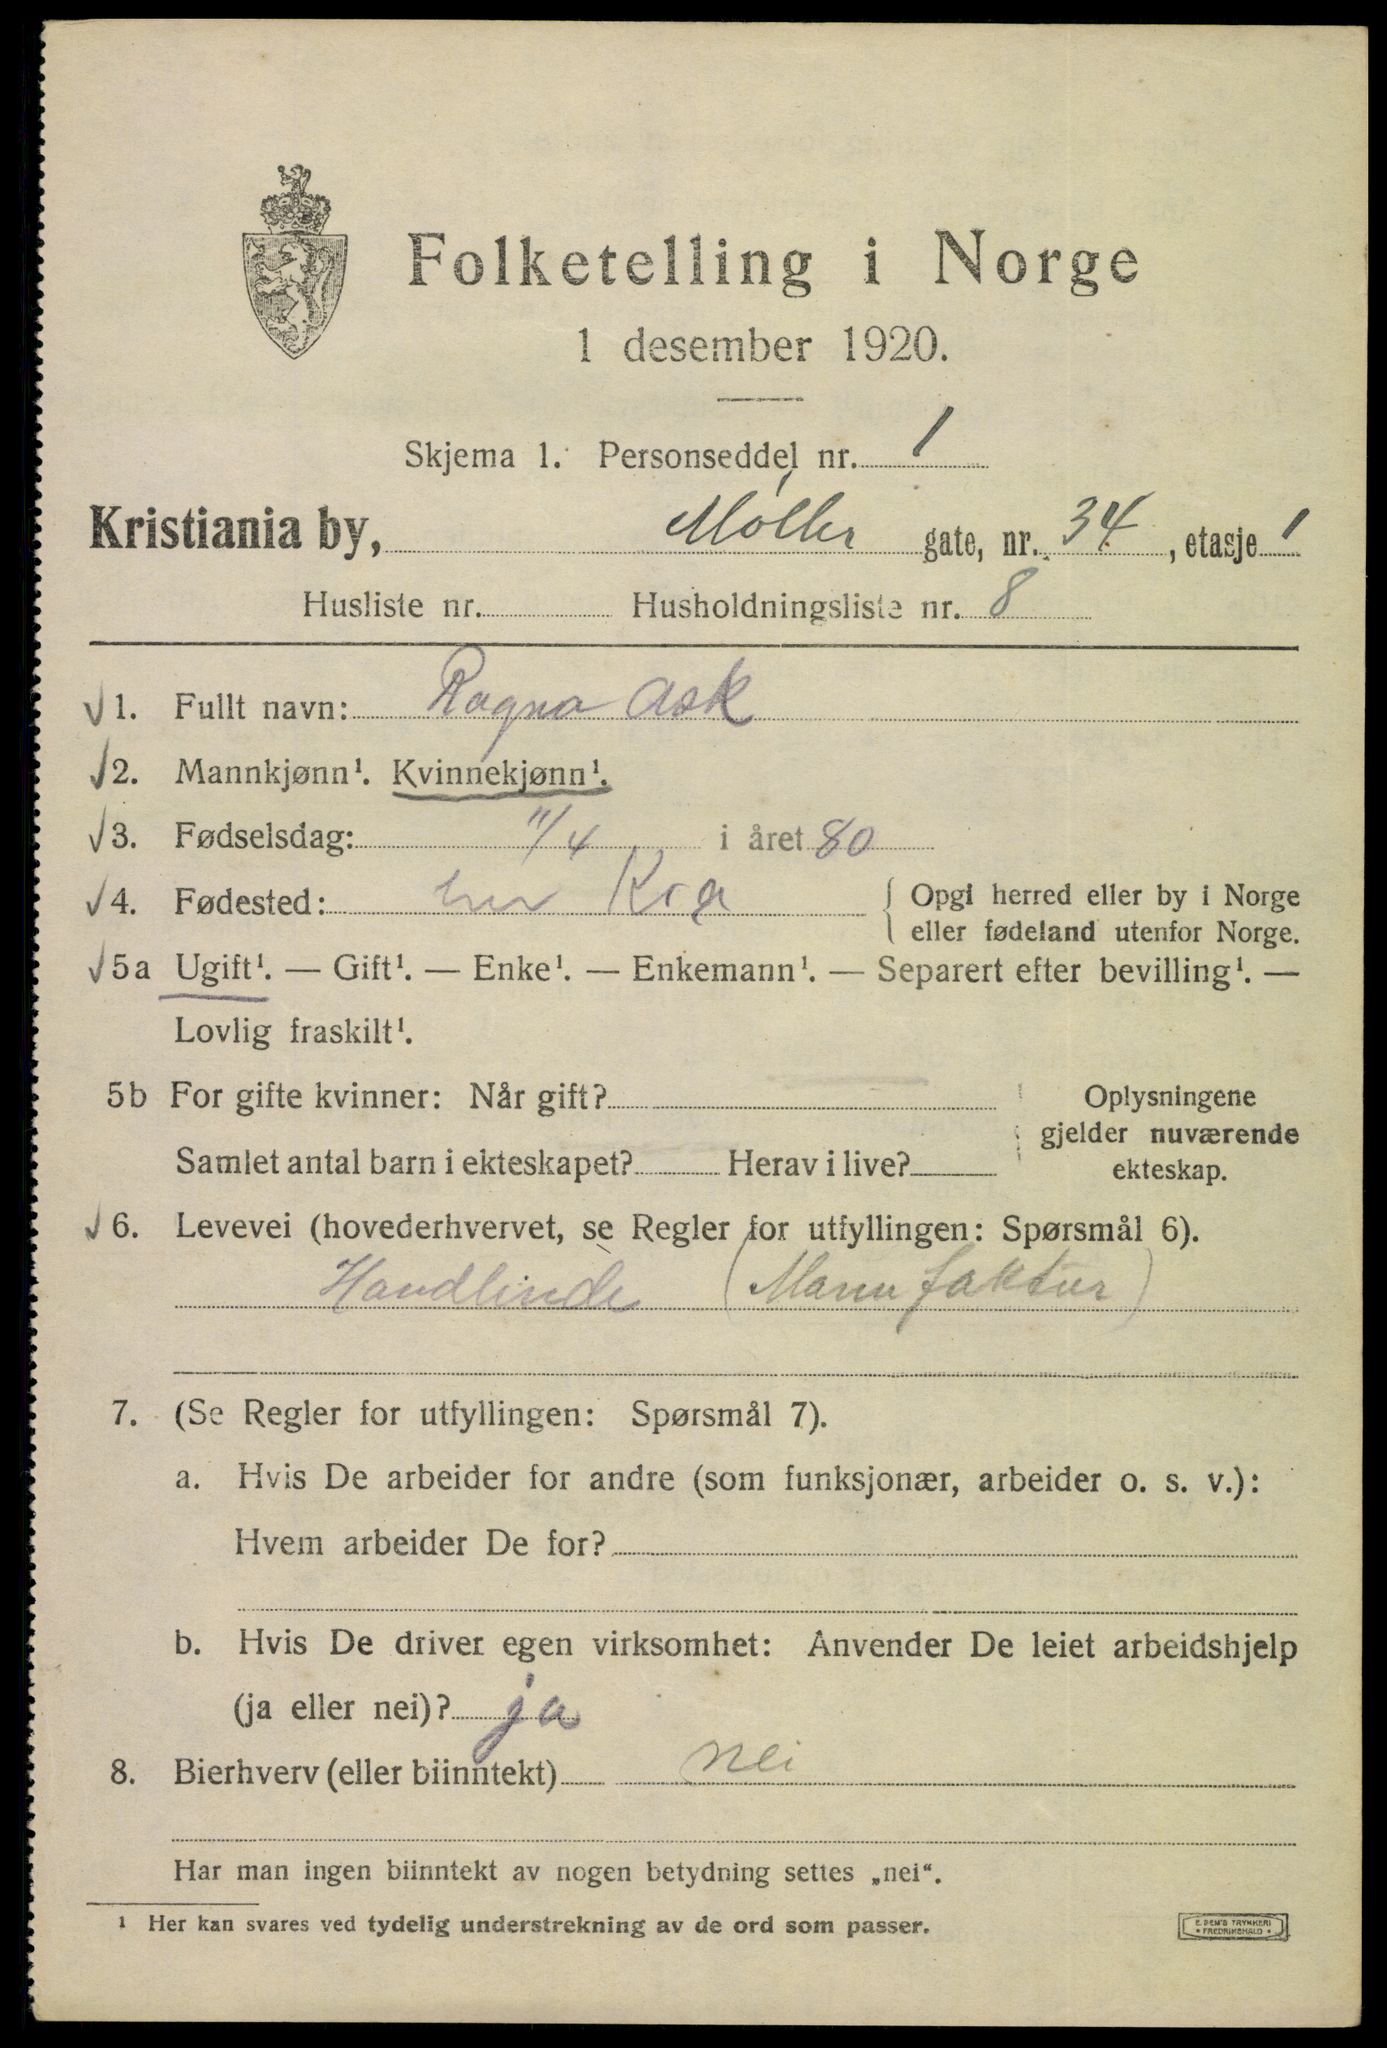 Folketelling i Norge
1 desember 1920.
Skjema 1. Personseddel nr. 1
Kristiania by, Møller gate, nr. 34, etasje 1
Husliste nr. Husholdningsliste nr. 8
1. Fullt navn: Ragna Ask
2. Mannkjønn¹. Kvinnekjønn¹.
3. Fødselsdag: 11/4 i året 80
4. Fødested: her Kra { Opgi herred eller by i Norge
eller fødeland utenfor Norge.
5a Ugift¹. — Gift¹. — Enke¹. — Enkemann¹. — Separert efter bevilling¹. —
Lovlig fraskilt¹.
5b For gifte kvinner: Når gift? Oplysningene
gjelder nuværende
Samlet antal barn i ekteskapet? Herav i live? ekteskap.
6. Levevei (hovederhvervet, se Regler for utfyllingen: Spørsmål 6).
Handlende (Manufaktur)
7. (Se Regler for utfyllingen: Spørsmål 7).
a. Hvis De arbeider for andre (som funksjonær, arbeider o. s. v.):
Hvem arbeider De for?
b. Hvis De driver egen virksomhet: Anvender De leiet arbeidshjelp
(ja eller nei)? ja
8. Bierhverv (eller biinntekt) nei
Har man ingen biinntekt av nogen betydning settes „nei“.
¹ Her kan svares ved tydelig understrekning av de ord som passer.
E. SEM'S TRYKKERI
• FREDRIKSHALD •